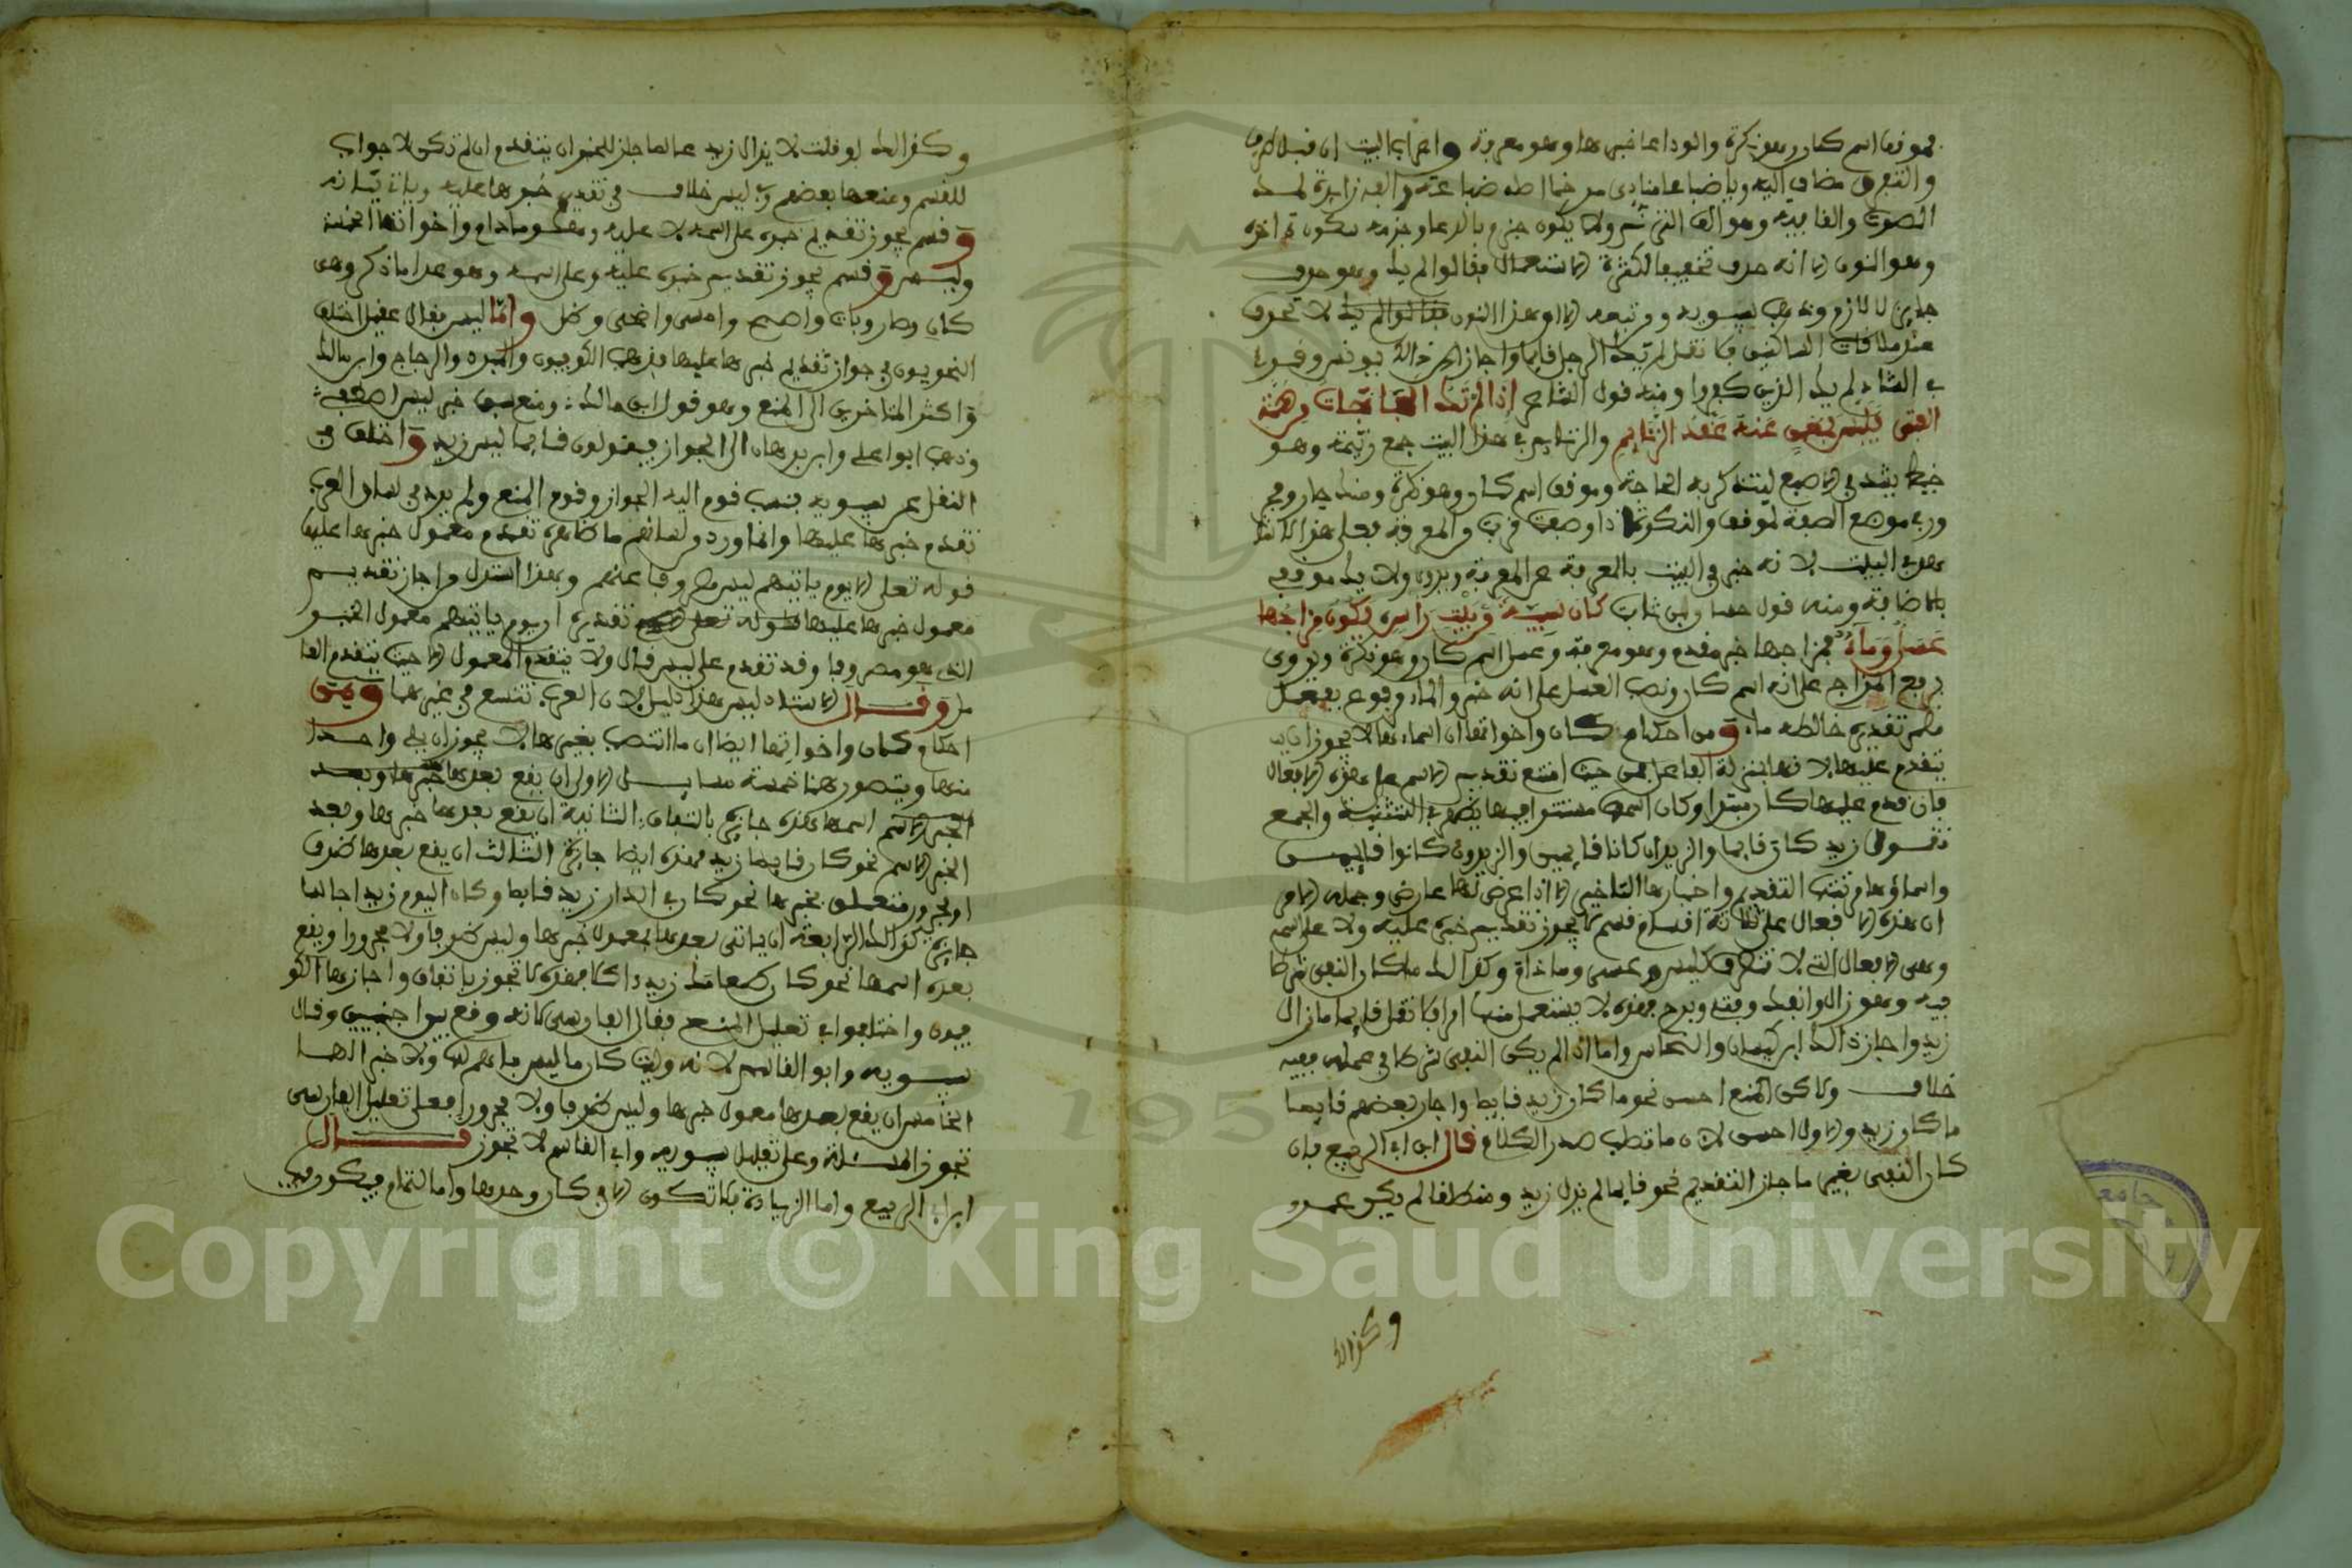 فموقف اسم كان وهو نكرة والوداعا خبرها وهو معرفة واعراب البيت ان قبل ظرف
والتفرق مضاف اليه ويا ضباعا منادى مرخما اصله ضباعة والفه زايدة لمد
الصوت والفا فيه وهو الف الترنم ولا يكون جزم بالدعا وجزمه سكون اخره
وهو النون الا انه حذف تخفيفا لكثرة الاستعمال فقالوا لم يك وهو حذف
جايز لا لازم ومذهب سيبويه ومن تبعه ان هذا النون لا تحذف
عند ملاقات الساكن فلا تقل لم يك الرجل قايما واجاز ذالك يونس وقرئ
في الشاذ لم يك الذين كفروا ومنه قول الشاعر اذا لم تك الحاجات من همة
الفتى فليس بمغن عنه عقد الرتايم والرتايم في هذا البيت جمع رتيمة وهو
خيط يشد في الاصبع ليتذكر به الحاجة وموقف اسم كان وهو نكرة ومنك جار ومجرور
في موضع الصفة لموقف والنكرة اذا وصفت قربت من المعرفة فعلى هذا لا شاهد
في البيت لانه خبر في البيت بالمعرفة عن المعرفة ويروى ولا يك موقفي
بالاضافة ومنه قول حسان بن ثابت كان سبيئة من بيت راس يكون مزاجها
عسل وماء فمزاجها خبر مقدم وهو معرفة وعسل اسم كان وهو نكرة ويروى
برفع المزاج على انه اسم كان ونصب العسل على انه خبر والماء مرفوع بفعل
مضمر تقديره خالطه ماء ومن احكام كان واخواتها ان اسماءها لا يجوز ان
يتقدم عليها لانها بمنزلة الفاعل فمن حيث امتنع تقديم الاسم على هذه الافعال
فان قدم عليها كان مبتدا وكان اسمها مستترا فيها يظهر في التثنية والجمع
تقول زيد كان قايما والزيدان كانا قايمين والزيدون كانوا قايمين
واسماؤها مرتبته التقديم واخبارها التاخير الا اذا عرض لها عارض وجملة الامر
ان هذه الافعال على ثلاثة اقسام قسم لا يجوز تقديم خبره عليه ولا على اسمه
وهي الافعال التي لا تتصرف كليس وعسى وما دام وكذالك ما كان النفي شرطا
فيه وهو زال وانفك وفتئ وبرح فهذه لا يستعمل منها امرا فلا تقل قايما ما زال
زيد واجازه ابن كيسان والنحاس واما اذا لم يكن النفي شرطا في عمله ففيه
خلاف ولاكن المنع احسن نحو ما كان زيد قايما واجاز بعضهم قايما
ما كان زيد والاول احسن لان ما تطلب صدر الكلام قال ابن ابي الربيع فان
كان النفي بغير ما جاز التقديم نحو قايما لم يزل زيد ومنطلقا لم يكن عمرو
وكذالك
وكذالك لو قلت لا يزال زيد عالما جاز للخبر ان يتقدم ان لم تكن لا جواب
للقسم ومنعها بعضهم وفي ليس خلاف في تقديم خبرها عليه وياتي بيانه
وقسم يجوز تقديم خبره على اسمه لا عليه وهو ما دام واخواتها الخمسة
وليس وقسم يجوز تقديم خبره عليه وعلى اسمه وهو عدا ما ذكر وهي
كان وصار وبات واصبح وامسى واضحى وظل واما ليس فقال عقيل اختلف
النحويون في جواز تقديم خبرها عليها فذهب الكوفيون والمبرد والزجاج وابن مالك
واكثر المتاخرين الى المنع وهو قول ابن مالك ومنع سبق خبر ليس اصطفي
وذهب ابوا علي وابن برهان الى الجواز فيقولون قايما ليس زيد واختلف في
النقل عن سيبويه فنسب قوم اليه الجواز وقوم المنع ولم يرد في لسان العرب
تقدم خبرها عليها وانما ورد في لسانهم ما ظاهره تقدم معمول خبرها عليها
قوله تعلى الا يوم ياتيهم ليس مصروفا عنهم وبهذا استدل من اجاز تقديم
معمول خبرها عليها تقديره ان يوم ياتيهم معمول الخبر
الذي هو مصروفا وقد تقدم على ليس قال ولا يتقدم المعمول الا حيث يتقدم العا
مل وقال الاستاذ ليس هذا دليل لان العرب تتسع في غيرها ومن
احكام كان واخواتها ايضا ان ما انتصب بغيرها لا يجوز ان يلي واحدا
منها ويتصور هنا خمسة مسايل الاولى ان يقع بعدها خبرها وبعد
الخبر الاسم اسمها فهذه جايزة باتفاق الثانية ان يقع بعدها خبرها وبعد
الخبر الاسم نحو كان قايما زيد فهذه ايضا جايزة الثالث ان يقع بعدها ظرف
او مجرور متعلق بخبرها نحو كان في الدار زيد قايما وكان اليوم زيد جالسا
جايزة كذالك الرابعة ان ياتي بعدها معمول خبرها وليس ظرفا ولا مجرورا ويقع
بعده اسمها نحو كان طعامك زيد ءاكلا فهذه لا تجوز باتفاق واجازها الكو
فيون واختلفوا في تعليل المنع فقال الفارسي لانه وقع بين اجنبيين وقال
سيبويه وابو القاسم لانه وليت كان ما ليس باسم لها ولا خبر لها
الخامس ان يقع بعدها معمول خبرها وليس ظرفا ولا مجرورا فعلى تعليل الفارسي
تجوز المسئلة وعلى تعليل سيبويه وابي القاسم لا تجوز قال
ابن ابي الربيع واما الزيادة فلا تكون الا في كان وحدها واما التمام فيكون في
Copyright © King Saud University
195
جامعة